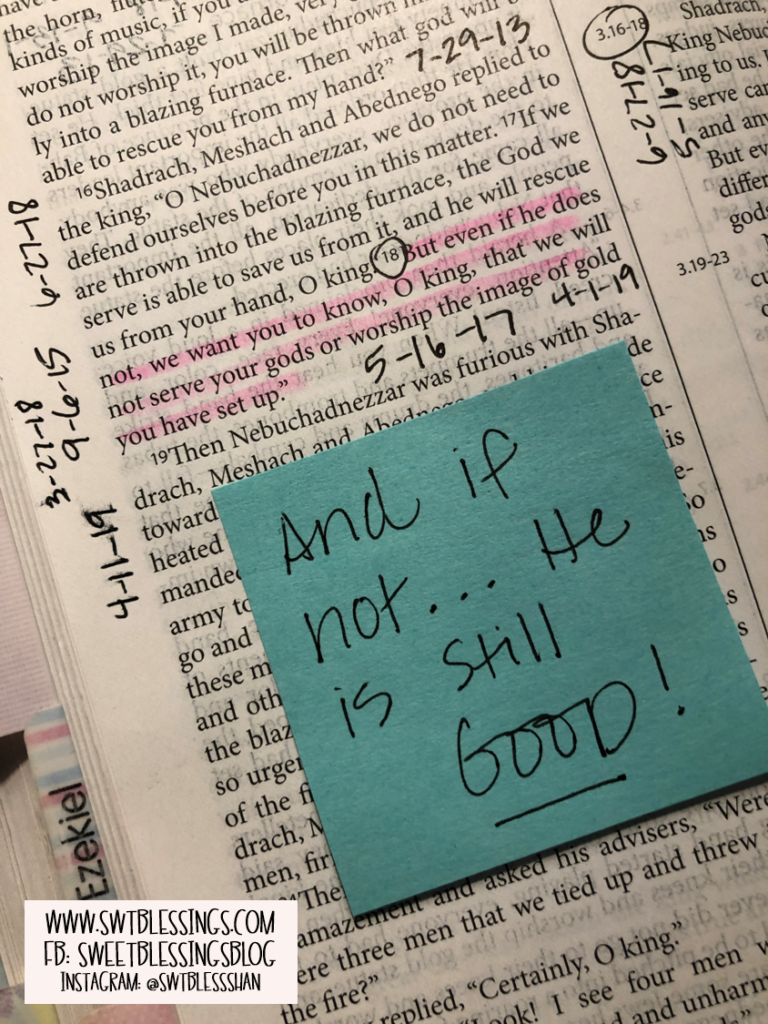 have
the horn, flu
kinds of music, if you
worship the image I made, very
do not worship it, you will be thrown im
ly into a blazing furnace. Then what god will b
able to rescue you from my hand?" 7-29-13
16Shadrach, Meshach and Abednego replied to
the king, "O Nebuchadnezzar, we do not need to
defend ourselves before you in this matter. 17If we
are thrown into the blazing furnace, the God we
serve is able to save us from it, and he will rescue
us from your hand, O king. 18But even if he does
not, we want you to know, O king, that we will
not serve your gods or worship the image of gold
you have set up." 5-16-17 4-1-19
19Then Nebuchadnezzar was furious with Sha-
drach, Meshach and Abedne
toward
heated
manded
army to
go and
these m
and oth
the blaz
so urgen
of the fi
drach, M
men, fir
24The
amazement and asked his advisers, "Were
ere three men that we tied up and threw
the fire?"
replied, "Certainly, O king."
Look! I see four men w
and unharm
de
ce
n-
is
e-
So
ns
o
s
s
6-27-18
9-6-15
3-27-18
4-11-19
3.16-18
6-27-18
Shadrach,
King Nebuc
ing to us. I
serve can
and any
But ev
differ
gods
3.19-23
And if
not... He
is still
GOOD!
Ezekiel
WWW.SWTBLESSINGS.COM
FB: SWEETBLESSINGSBLOG
INSTAGRAM: @SWTBLESSSHAN